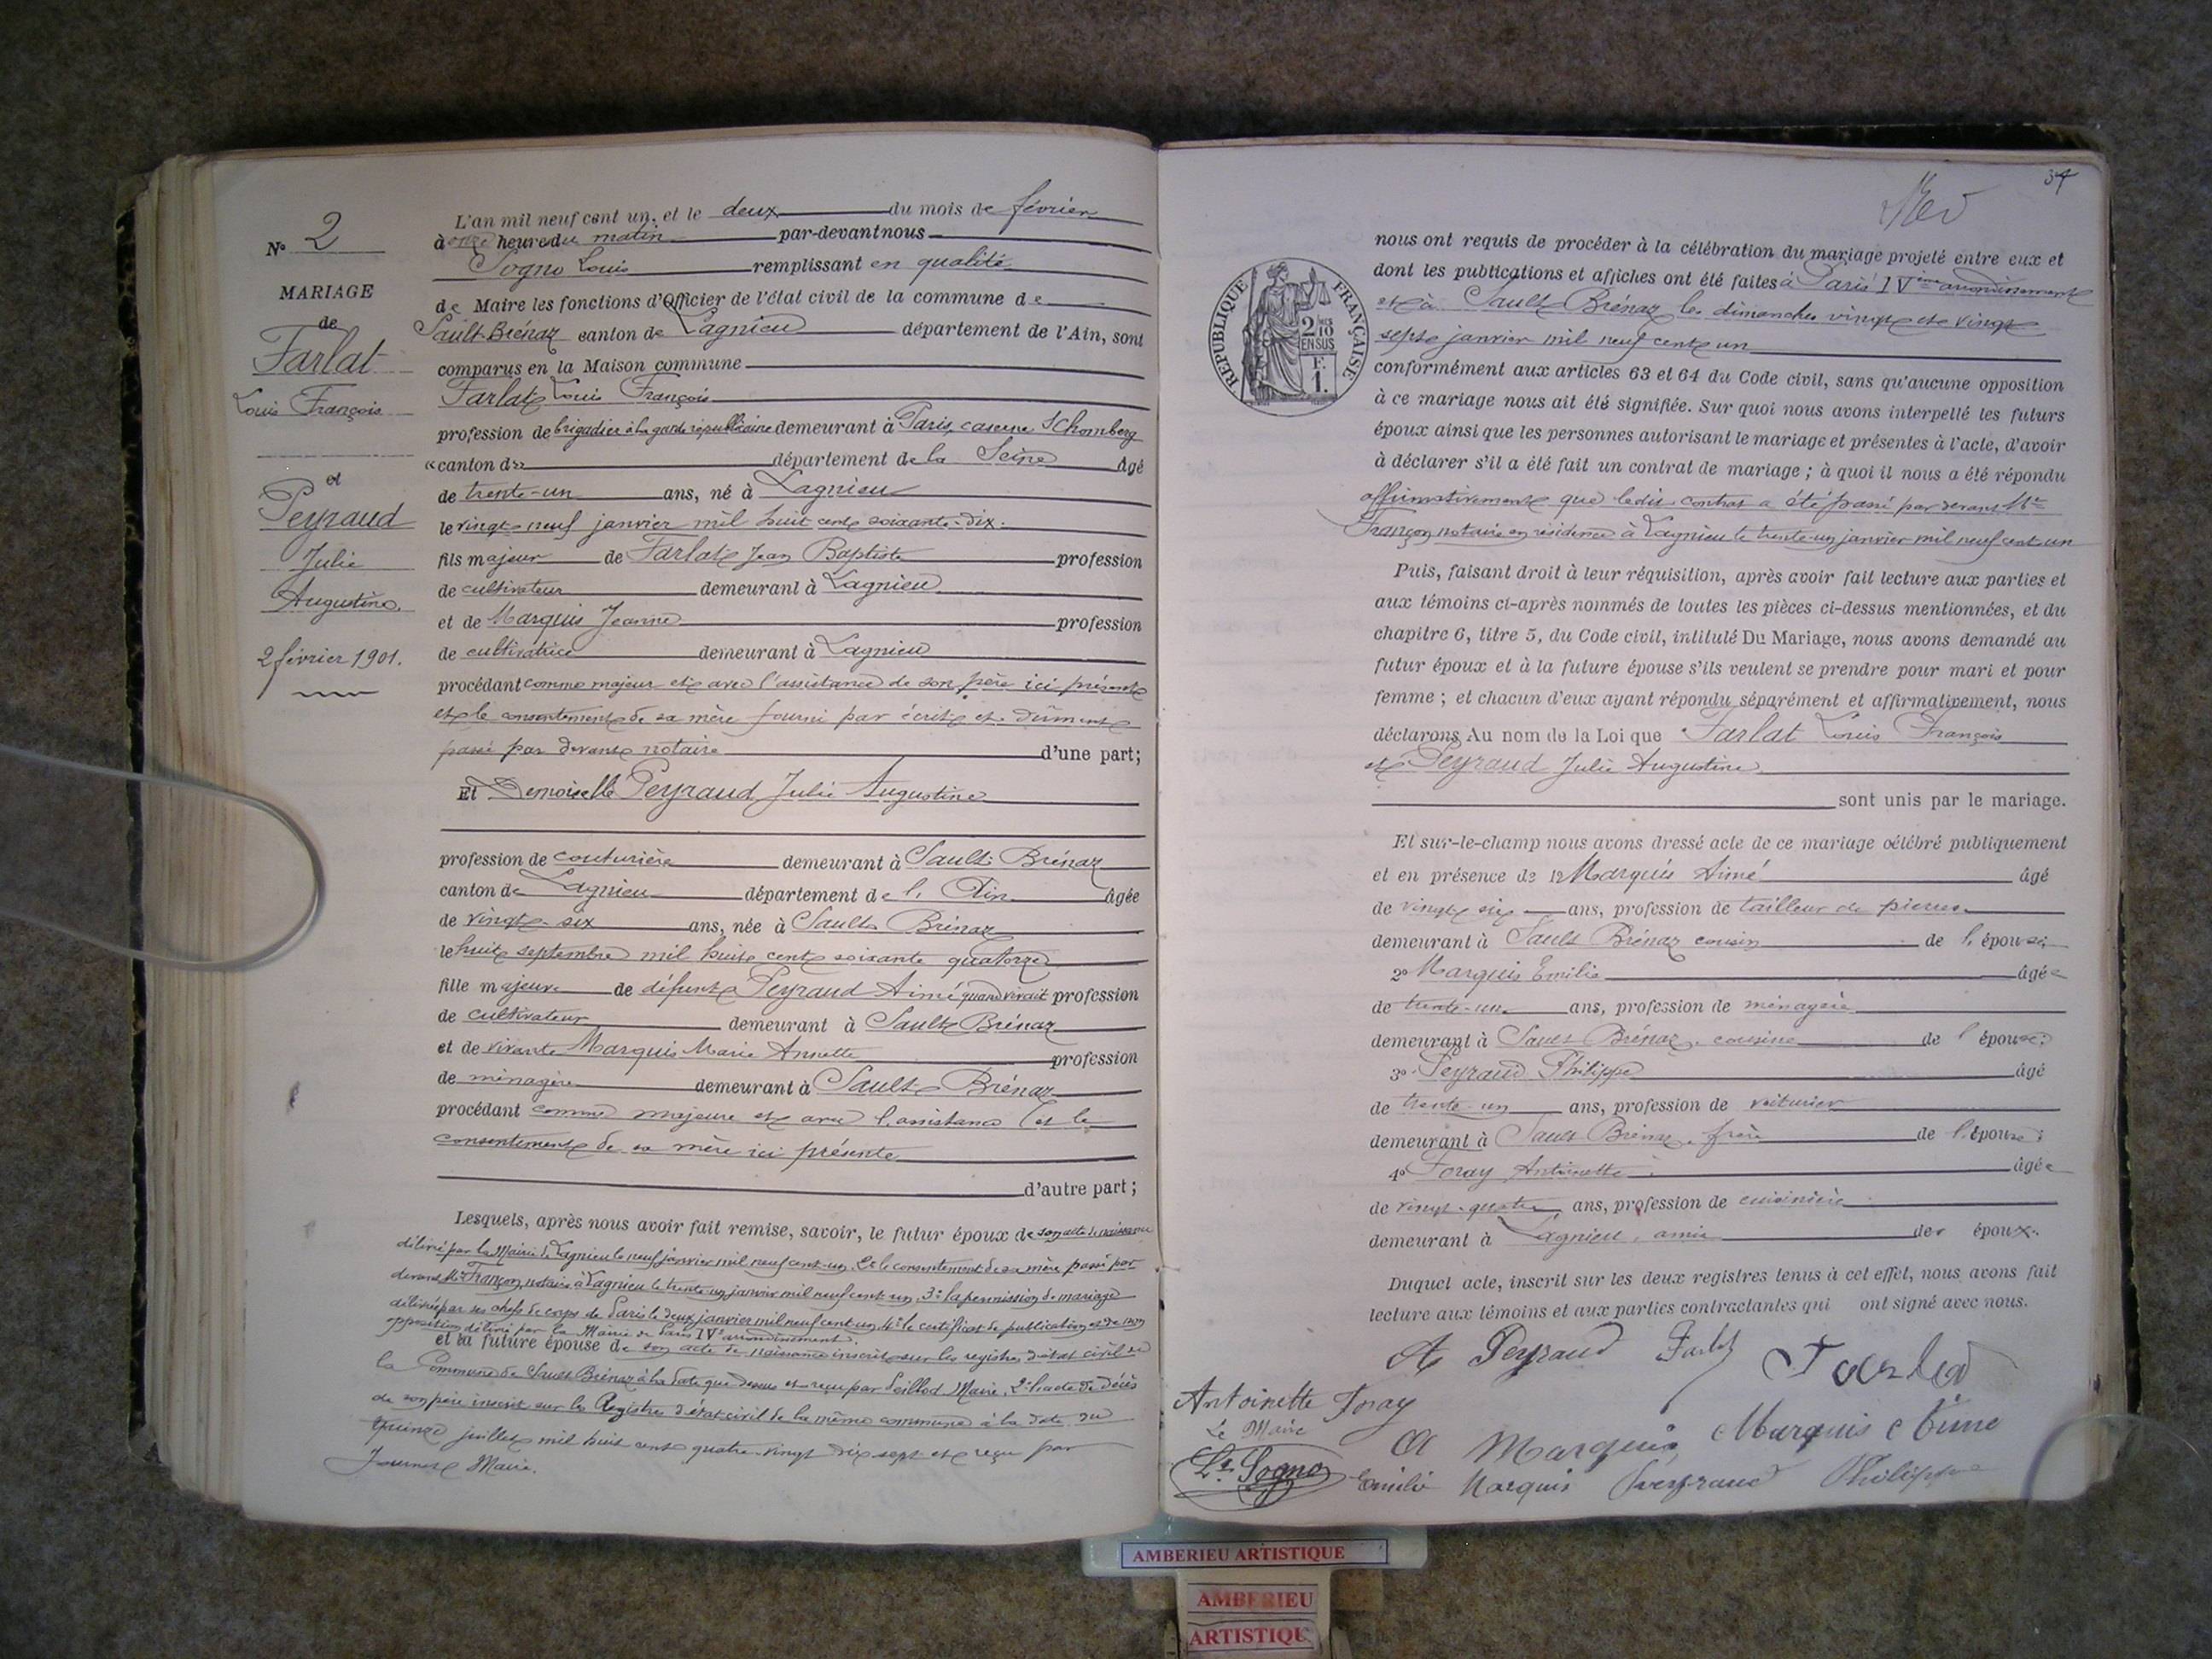 N° 2
MARIAGE
de
Farlat
Louis François
et
Peyraud
Julie
Augustine
2 février 1901.
L'an mil neuf cent un, et le deux du mois de février
à onze heures du matin par-devant nous
Sogno Louis remplissant en qualité
de Maire les fonctions d'Officier de l'état civil de la commune de
Sault-Brénaz canton de Lagnieu département de l'Ain, sont
comparus en la Maison commune
Farlat Louis François
profession de brigadier à la garde républicaine demeurant à Paris, caserne Schomberg
canton d département de la Seine âgé
de trente-un ans, né à Lagnieu
le vingt-neuf janvier mil huit cent soixante-dix.
fils majeur de Farlat Jean Baptiste profession
de cultivateur demeurant à Lagnieu
et de Marquis Jeanne profession
de cultivatrice demeurant à Lagnieu
procédant comme majeur et avec l'assistance de son père ici présent
et le consentement de sa mère fourni par écrit et dûment
passé par devant notaire d'une part;
Et Demoiselle Peyraud Julie Augustine
profession de couturière demeurant à Sault-Brénaz
canton de Lagnieu département de l'Ain âgée
de vingt-six ans, née à Sault-Brénaz
le huit septembre mil huit cent soixante quatorze
fille majeure de défunt Peyraud Aimé quand vivait profession
de cultivateur demeurant à Sault-Brénaz
et de vivante Marquis Marie Annette profession
de ménagère demeurant à Sault-Brénaz
procédant comme majeure et avec l'assistance et le
consentement de sa mère ici présente
d'autre part;
Lesquels, après nous avoir fait remise, savoir, le futur époux de son acte de naissance
délivré par la Mairie de Lagnieu le neuf janvier mil neuf cent-un, 2° le consentement de sa mère passé par
devant Me Françon, notaire à Lagnieu le trente un janvier mil neuf cent un, 3° la permission de mariage
délivrée par ses chefs de corps de Paris le deux janvier mil neuf cent un, 4° le certificat de publication et de non
opposition délivré par la Mairie de Paris IVe arrondissement.
et la future épouse de son acte de naissance inscrit sur les registres d'état civil de
la Commune de Sault-Brénaz à la date que dessus et reçu par Maire, 2° l'acte de décès
de son père inscrit sur les Registres d'état civil de la même commune à la date du
quinze juillet mil huit cent quatre-vingt dix-sept et reçu par
Maire.
37
nous ont requis de procéder à la célébration du mariage projeté entre eux et
dont les publications et affiches ont été faites à Paris IVème arrondissement
et à Sault-Brénaz les dimanches vingt et vingt
sept janvier mil neuf cent un
conformément aux articles 63 et 64 du Code civil, sans qu'aucune opposition
à ce mariage nous ait été signifiée. Sur quoi nous avons interpellé les futurs
époux ainsi que les personnes autorisant le mariage et présentes à l'acte, d'avoir
à déclarer s'il a été fait un contrat de mariage ; à quoi il nous a été répondu
affirmativement que ledit contrat a été passé par devant Me
Françon notaire en résidence à Lagnieu le trente-un janvier mil neuf cent un
Puis, faisant droit à leur réquisition, après avoir fait lecture aux parties et
aux témoins ci-après nommés de toutes les pièces ci-dessus mentionnées, et du
chapitre 6, titre 5, du Code civil, intitulé Du Mariage, nous avons demandé au
futur époux et à la future épouse s'ils veulent se prendre pour mari et pour
femme ; et chacun d'eux ayant répondu séparément et affirmativement, nous
déclarons Au nom de la Loi que Farlat Louis François
et Peyraud Julie Augustine
sont unis par le mariage.
Et sur-le-champ nous avons dressé acte de ce mariage célébré publiquement
et en présence de 1° Marquis Aimé âgé
de vingt six ans, profession de tailleur de pierres
demeurant à Sault Brénaz cousin de l'épouse
2° Marquis Emilie âgée
de trente-un ans, profession de ménagère
demeurant à Sault Brénaz, cousine de l'épouse;
3° Peyraud Philippe âgé
de trente-un ans, profession de voiturier
demeurant à Sault Brénaz, frère de l'épouse;
4° Foray Antoinette âgée
de vingt-quatre ans, profession de cuisinière
demeurant à Lagnieu, amie des époux.
Duquel acte, inscrit sur les deux registres tenus à cet effet, nous avons fait
lecture aux témoins et aux parties contractantes qui ont signé avec nous.
A Peyraud Farlat Farlat
Antoinette Foray
Le Maire
A Marquis Marquis Aimé
Ls Sogno Emilie Marquis Peyraud Philippe
RÉPUBLIQUE FRANÇAISE
2/10 EN SUS
F. 1.
AMBERIEU ARTISTIQUE
AMBERIEU
ARTISTIQUE